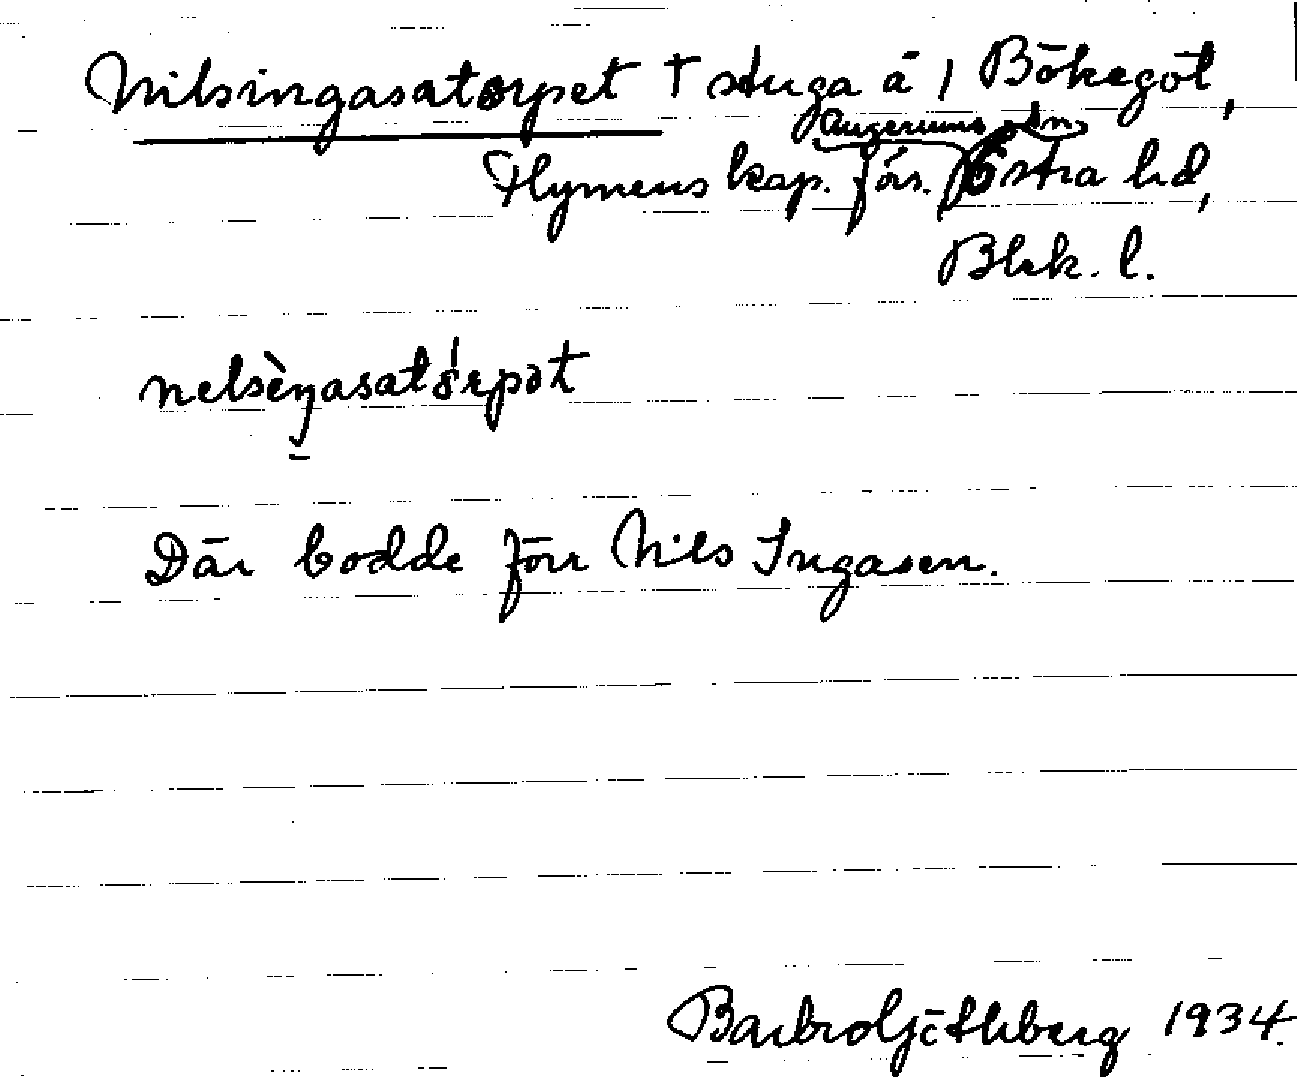 Nilsingasatorpet † stuga å 1 Bökegöl,
Augerums sn
Flymens kap. förs. Östra hd,
Blek. l.
nelsèŋasatórpət
Där bodde förr Nils Ingasen.
1934.